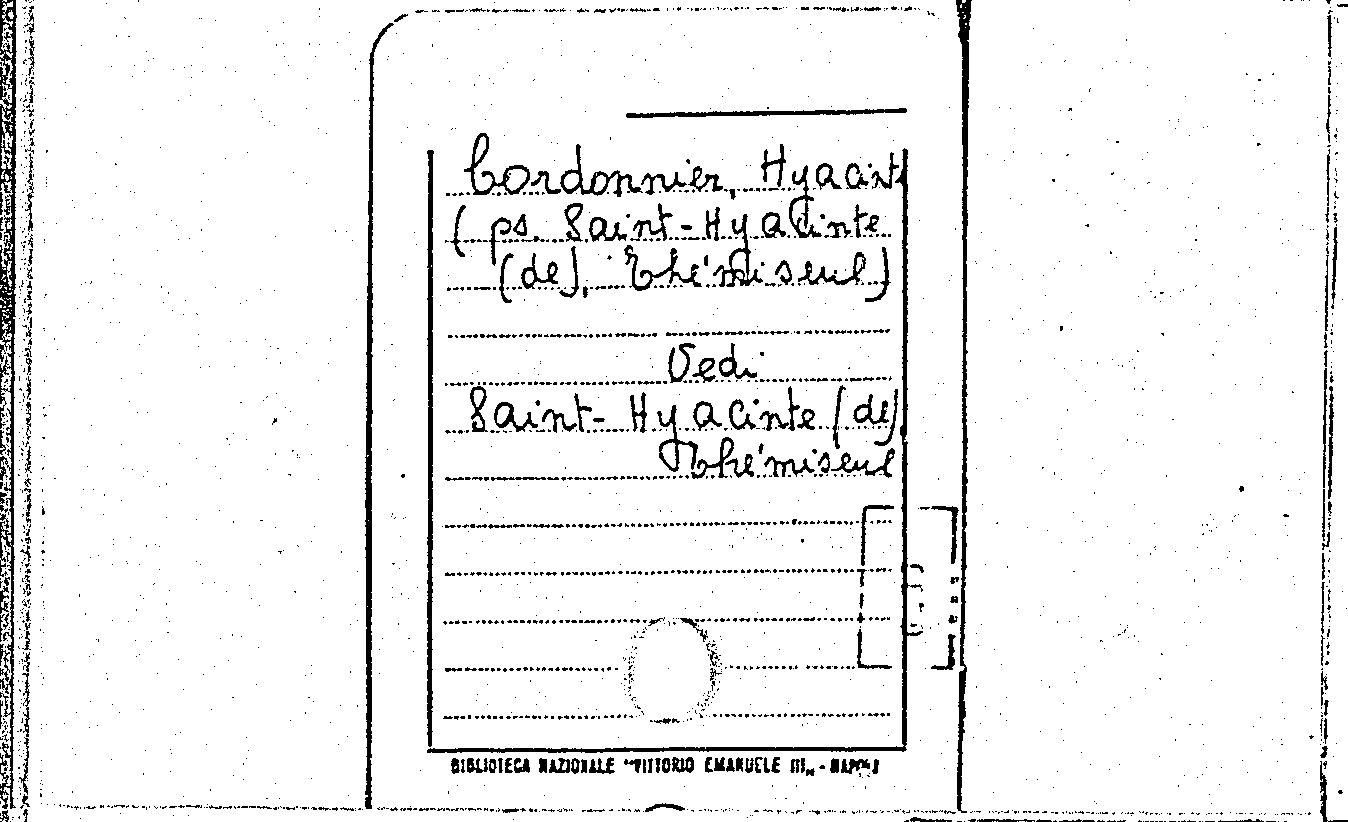 Cordonnier, Hyacinte
( ps. Saint-Hyacinte
(de), Thémiseul)
Vedi
Saint-Hyacinte (de)
Thémiseul
BIBLIOTECA NAZIONALE "VITTORIO EMANUELE III„ - NAPOLI